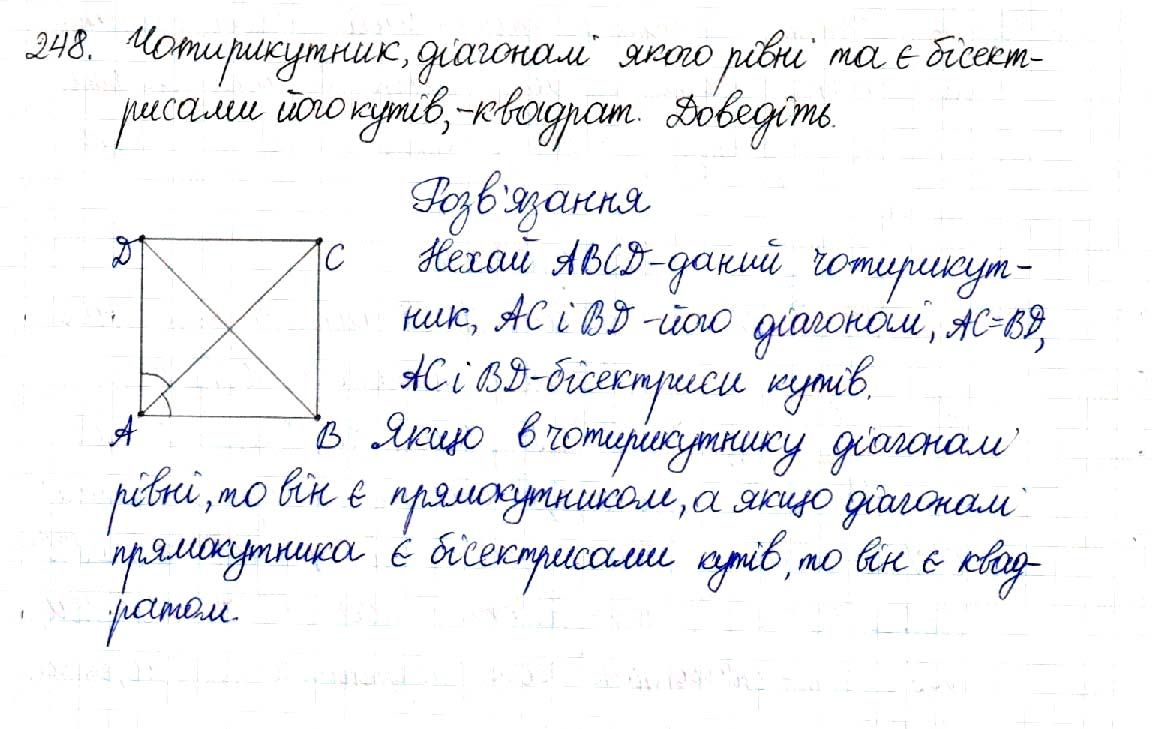 248. Чотирикутник, діагоналі якого рівні та є бісект-
рисами його кутів, - квадрат. Доведіть.
Розв'язання
D
C
Нехай ABCD - даний чотирикут-
ник, AC і BD - його діагоналі, AC=BD,
AC і BD - бісектриси кутів.
A
B
Якщо в чотирикутнику діагоналі
рівні, то він є прямокутником, а якщо діагоналі
прямокутника є бісектрисами кутів, то він є квад-
ратом.